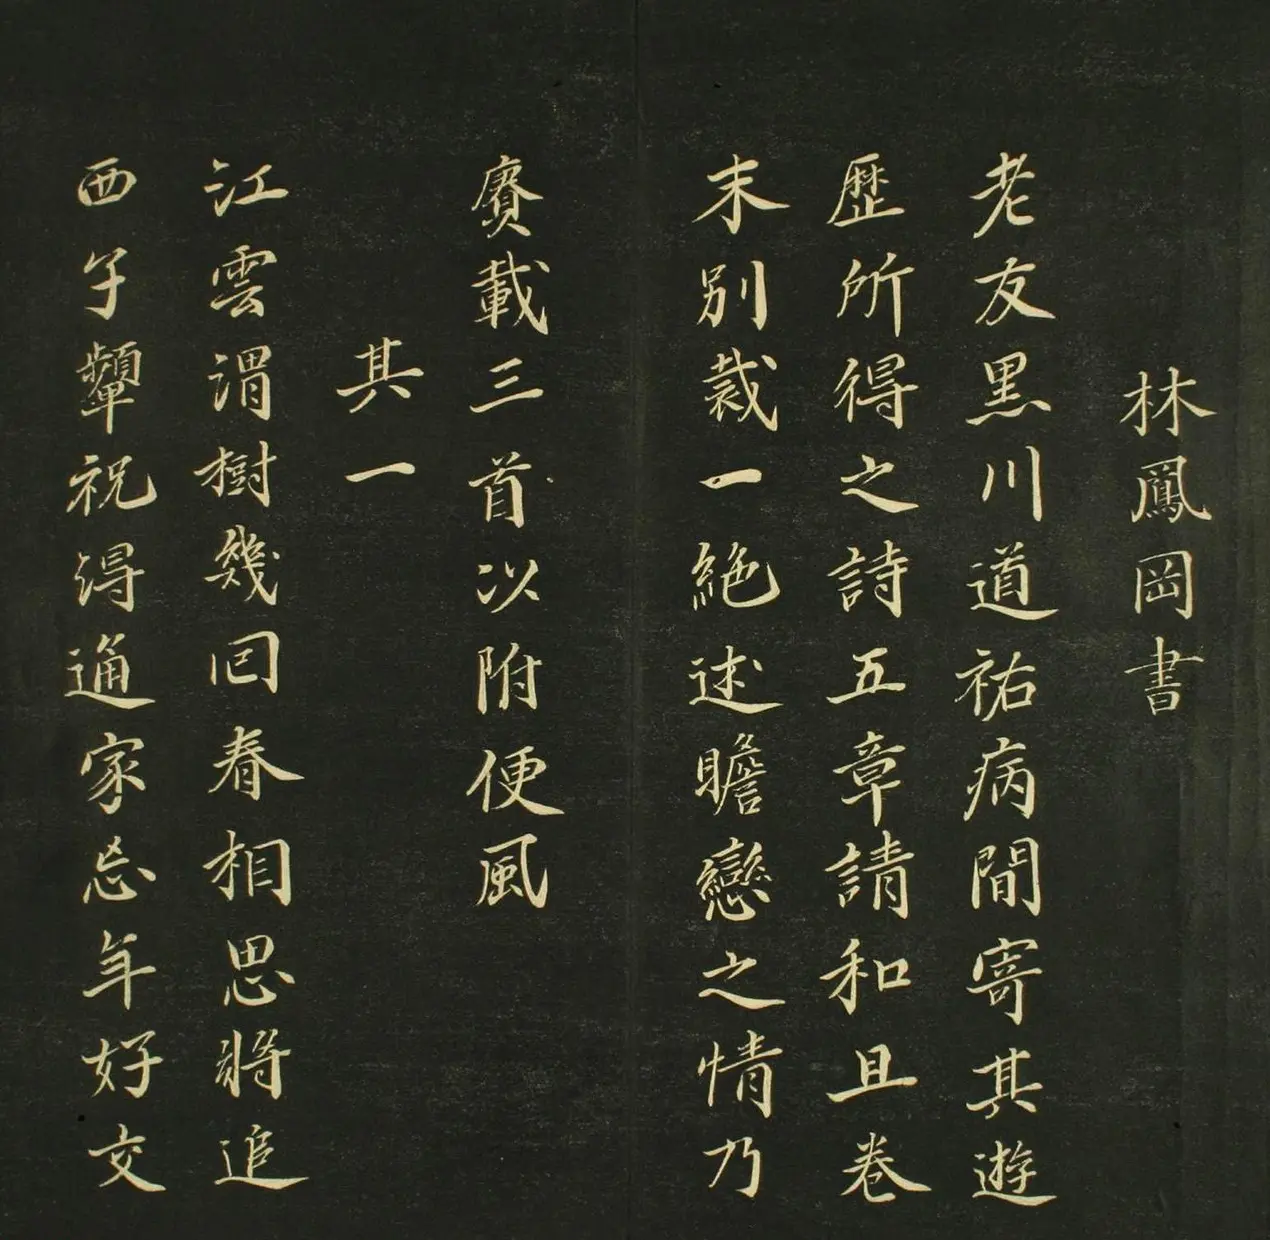 林鳳岡書
老友黒川道祐病間寄其遊
歷所得之詩五章請和且卷
末別裁一絶述瞻戀之情乃
賡載三首以附便風
其一
江雲渭樹幾回春相思將追
西子顰祝得通家忘年好交